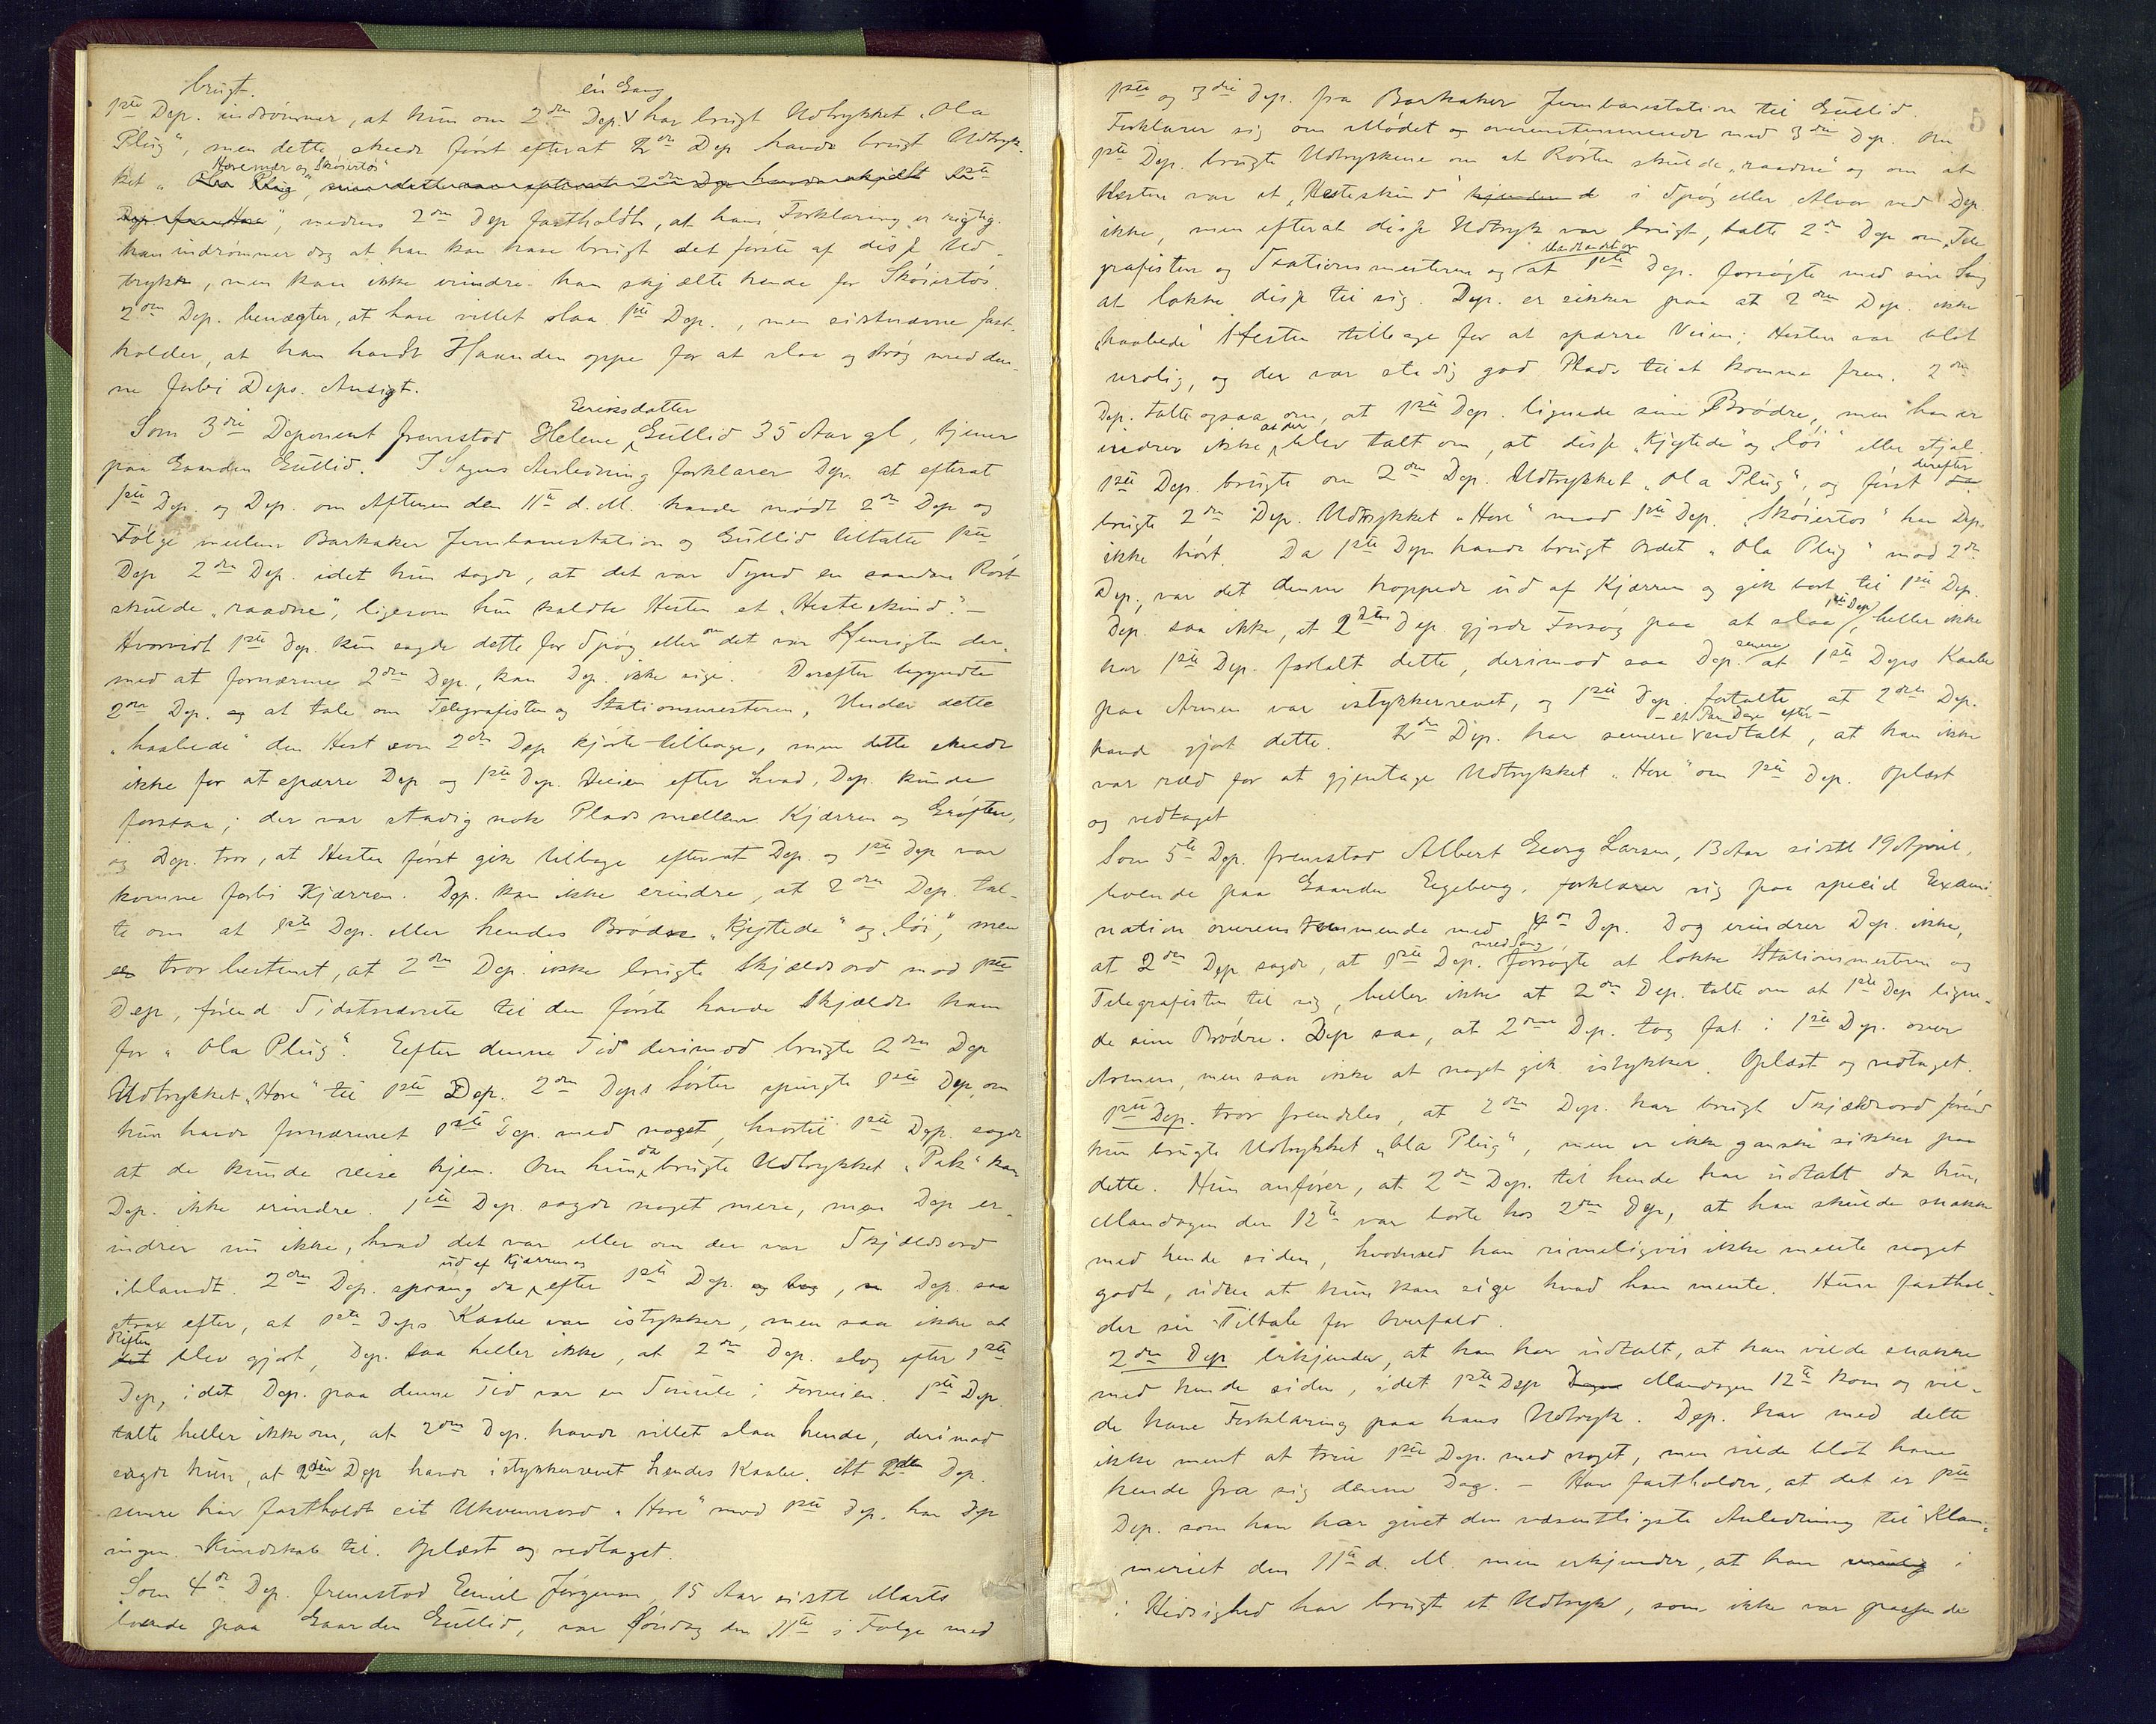 brugt.
1ste Dep. indrømmer, at hun om 2den Dep. én Gang har brugt Udtrykket „Ola
Plug“, men dette skede først efterat 2den Dep havde brugt Udtryk-
ket „Horemær og Skøiertøs
Ola Plug“, men dette var efterat 2den Dep havde skjeldt 1ste
Dep. for Hore“, medens 2den Dep fastholdt, at hans Forklaring er rigtig.
han indrømmer dog at han kan have brugt det første af disse Ud-
tryk, men kan ikke erindre han skjælte hende for Skøiertøs.
2den Dep. benægter, at have villet slaa 1ste Dep., men sidstnævnte fast-
holder, at han havde Haanden oppe for at slaa og strøg med den-
ne forbi Deps. Ansigt.
Som 3die Deponent fremstod Helene Eriksdatter Gullid 35 Aar gl, tjener
paa Gaarden Gullid. I Sagens Anledning forklarer Dep. at efterat
1ste Dep. og Dep. om Aftenen den 11te d. M. havde mødt 2den Dep og
Følge mellem Barkaker Jernbanestation og Gullid tiltalte 1ste
Dep 2den Dep. idet hun sagde, at det var Synd en saadan Røst
skulde „raadne“, ligesom hun kaldte Hesten et „Hesteskind“. –
Hvorvidt 1ste Dep. kun sagde dette for Spøg eller om det var Hensigten der-
med at fornærme 2den Dep., kan Dep. ikke sige. Derefter begyndte
2den Dep. og at tale om Telegrafisten og Stationsmesteren, Under dette
„haabede“ den Hest som 2den Dep kjørte tilbage, men dette skede
ikke for at spærre Dep og 1ste Dep. Veien efter hvad, Dep. kunde
forstaa; der var stadig nok Plads mellem Kjærren og Grøften,
og Dep. tror, at Hesten først gik tilbage efter at Dep. og 1ste Dep var
komne forbi Kjærren. Dep. kan ikke erindre, at 2den Dep. tal-
te om at 1ste Dep. eller hendes Brødre „kjøtede“ og „løi“, men
tror bestemt, at 2den Dep. ikke brugte Skjældsord mod 1ste
Dep, førend Sidstnævnte til den første havde skjældt ham
for „Ola Plug“. Eefter denne Tid derimod brugte 2den Dep
Udtrykket „Hore“ til 1ste Dep. 2den Deps Søster spurgte 1ste Dep, om
hun havde fornærmet 1ste Dep. med noget, hvortil 1ste Dep. sagde
at de kunde reise hjem. Om hun da brugte Udtrykket „Pak“ kan
Dep. ikke erindre. 1ste Dep. sagde noget mere, men Dep er-
indrer nu ikke, hvad det var eller om der var Skjældsord
iblandt. 2den Dep. sprang da ud af Kjærren og efter 1ste Dep. og tog, Dep. saa
strax efter, at 1ste Deps Kaabe var istykker, men saa ikke at
Riften det blev gjort, Dep. saa heller ikke, at 2den Dep. slog efter 1ste
Dep, idet Dep. paa denne Tid var en Smule i Forveien. 1ste Dep
talte heller ikke om, at 2den Dep. havde villet slaa hende, derimod
sagde hun, at 2den Dep havde istykkerrevet hendes Kaabe. At 2den Dep.
senere har fastholdt sit Ukvemsord „Hore“ mod 1ste Dep. har Dep
ingen Kundskab til. Oplæst og vedtaget.
Som 4de Dep. fremstod Eemil Jørgensen 15 Aar sidstl Marts
boende paa Gaarden Gullid, var Søndag den 11te i Følge med
5
1ste og 3die Dep. fra Barkaker Jernbanestation til Gullid.
Forklarer sig om Mødet og overensstemmende med 3die Dep. Om
1ste Dep. brugte Udtrykkene om at Røsten skulde „raadne“ og om at
Hesten var et „Hesteskind“ i Spøg eller Alvor ved Dep.
ikke, men efterat disse Udtryk var brugt, talte 2den Dep om Tele
grafisten og Stationsmesteren og at 1ste Dep. forsøgte med sin Sang
at lokke disse til sig. Dep. er sikker paa at 2den Dep. ikke
„haabede“ Hesten tilbage for at spærre Veien; Hesten var blot
urolig, og der var stadig god Plads til at komme frem. 2den
Dep. talte ogsaa om, at 1ste Dep. lignede sine Brødre, men han er
indrer ikke at der blev talt om, at disse „kjøtede“ og „løi“ eller stjal.
1ste Dep. brugte om 2den Dep. Udtrykket „Ola Plug“, og først derefter
brugte 2den Dep. Udtrykket „Hore“ mod 1ste Dep. „Skøiertøs“ har Dep.
ikke hørt. Da 1ste Dep. havde brugt Ordet „Ola Plug“ mod 2den
Dep., var det denne hoppede ud af Kjærren og gik bort til 1ste Dep.
Dep. saa ikke, at 2den Dep. gjorde Forsøg paa at slaa 1ste Dep, heller ikke
har 1ste Dep. fortalt dette, derimod saa Dep. senere at 1ste Deps Kaabe
paa Armen var istykkerrevet, og 1ste Dep. fortalte at 2den Dep.
havde gjort dette. 2den Dep. har senere – et Par Dage efter – udtalt, at han ikke
var ræd for at gjentage Udtrykket „Hore“ om 1ste Dep. Oplæst
og vedtaget
Som 5te Dep. fremstod Albert Georg Larsen, 13 Aar sidstl 19 April,
boende paa Gaarden Eegeberg, forklarer sig paa speciel Exami-
nation overensstemmende med 4de Dep. Dog erindrer Dep. ikke,
at 2den Dep sagde, at 1ste Dep. med Sang forsøgte at lokke Stationsmesteren og
Telegrafisten til sig, heller ikke at 2den Dep. talte om at 1ste Dep ligne-
de sine Brødre. Dep saa, at 2den Dep. tog fat i 1ste Dep. over
Armen, men saa ikke at noget gik istykker. Oplæst og vedtaget.
1ste Dep. tror fremdeles, at 2den Dep. har brugt Skjældsord førend
hun brugte Udtrykket „Ola Plug“, men er ikke ganske sikker paa
dette. Hun anfører, at 2den Dep. til hende har udtalt da hun
Mandagen den 12te var borte hos 2den Dep, at han skulde snakke
med hende siden, hvormed han rimeligvis ikke mente noget
godt, uden at hun kan sige hvad han mente. Hun fasthol-
der sin Tiltale for Overfald.
2den Dep erkjender, at han har udtalt, at han vilde snakke
med hende siden, idet 1ste Dep Mandagen 12te kom og vil-
de have Forklaring paa hans Udtryk. Dep. har med dette
ikke ment at true 1ste Dep. med noget, men vilde blot have
hende fra sig denne Dag. – Han fastholder, at det er 1ste
Dep. som har givet den væsentligste Anledning til Klam-
meriet den 11te d. M. men erkjender, at han i
i Hidsighed har brugt et Udtryk, som ikke var passende